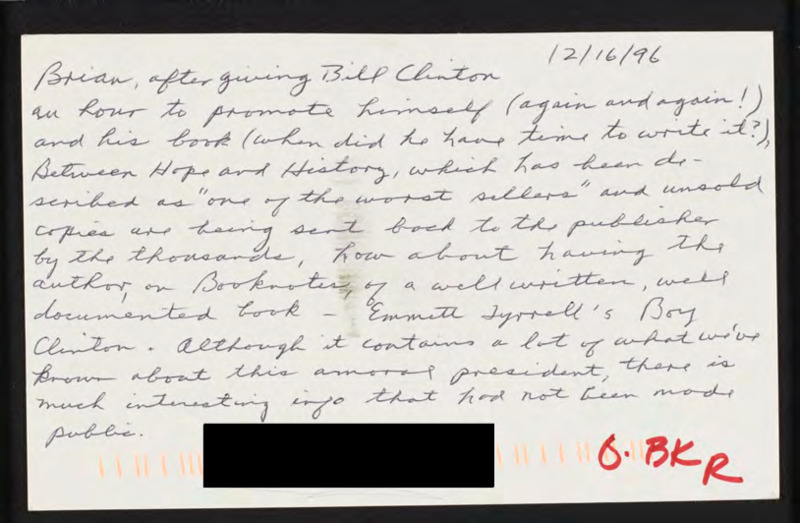 12/16/96
Brian, after giving Bill Clinton
an hour to promote himself (again and again!)
and his book (when did he have time to write it?),
Between Hope and History, which has been de-
scribed as "one of the worst sellers" and unsold
copies are being sent back to the publisher
by the thousands, how about having the
author, on Booknotes, of a well written, well
documented book - Emmett Tyrrell's Boy
Clinton. Although it contains a lot of what we've
known about this amoral president, there is
much interesting info that had not been made
public.
O. BKR